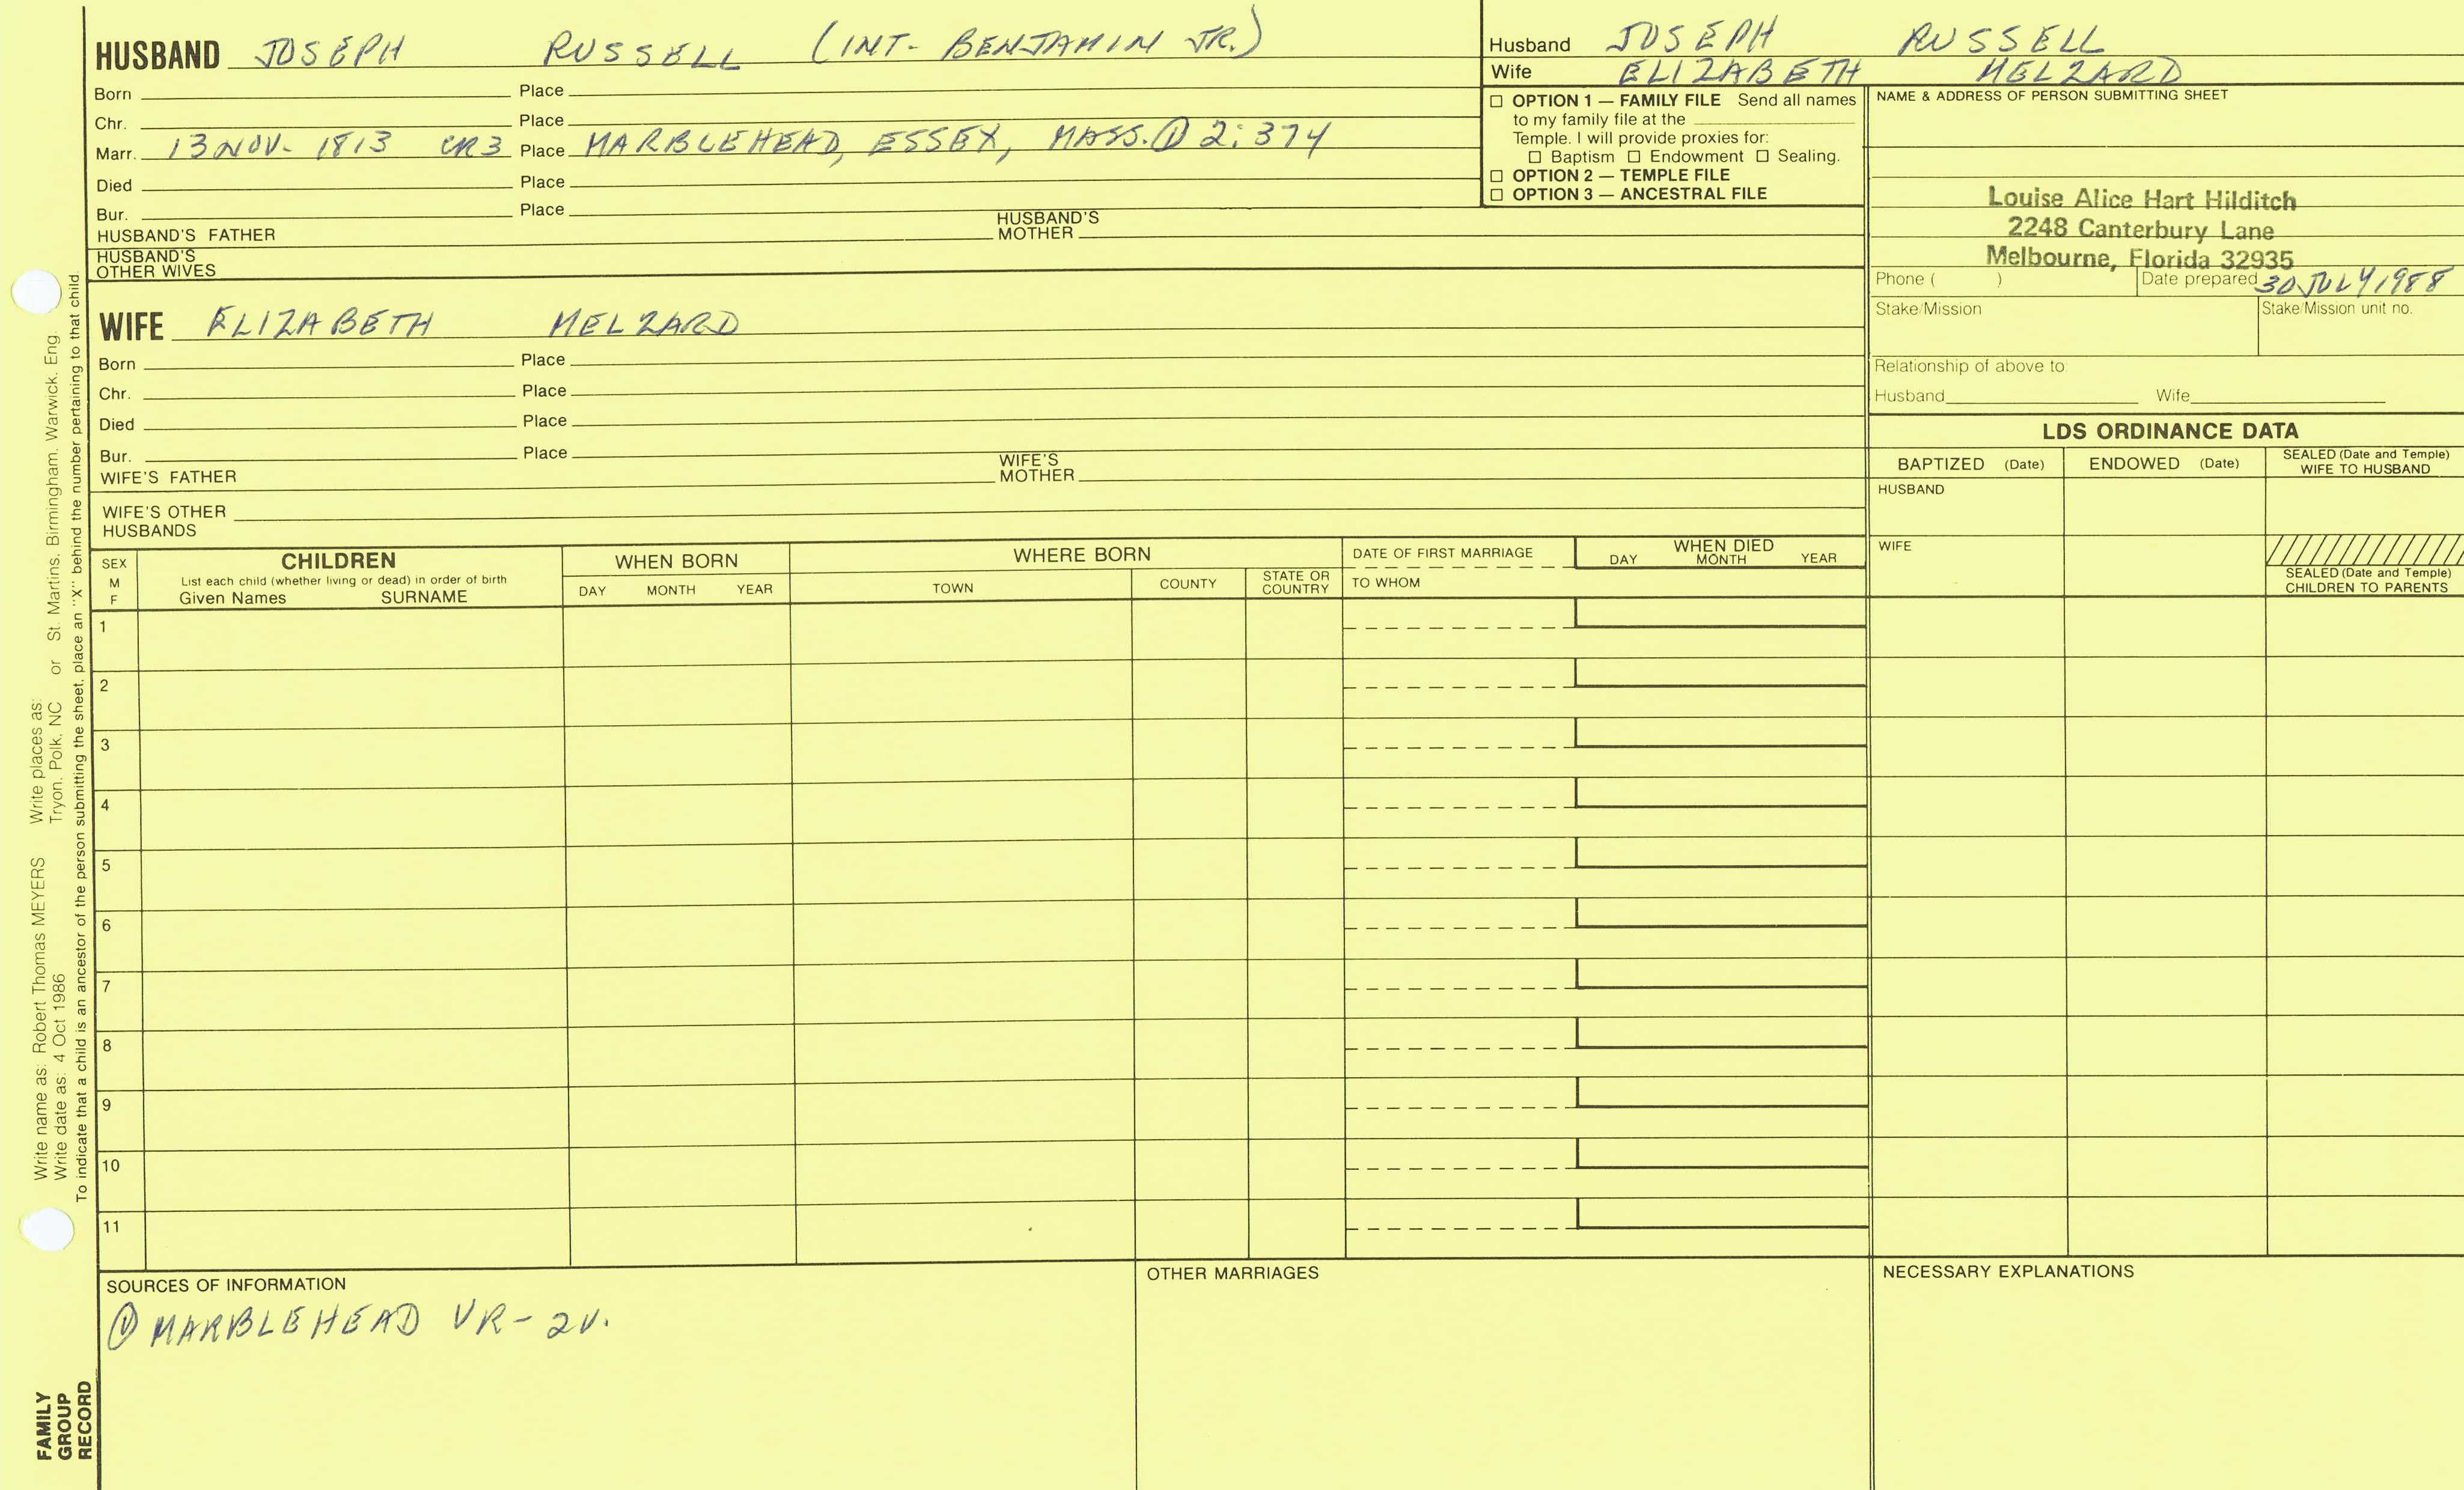 HUSBAND JOSEPH RUSSELL (INT- BENJAMIN JR.)
Born Place
Chr. Place
Marr. 13 NOV- 1813 CR3 Place MARBLEHEAD, ESSEX, MASS. ① 2:374
Died Place
Bur. Place
HUSBAND'S FATHER HUSBAND'S MOTHER
HUSBAND'S OTHER WIVES
WIFE ELIZABETH MELZARD
Born Place
Chr. Place
Died Place
Bur. Place
WIFE'S FATHER WIFE'S MOTHER
WIFE'S OTHER HUSBANDS
Husband JOSEPH RUSSELL
Wife ELIZABETH MELZARD
☐ OPTION 1 — FAMILY FILE Send all names
to my family file at the
Temple. I will provide proxies for:
☐ Baptism ☐ Endowment ☐ Sealing.
☐ OPTION 2 — TEMPLE FILE
☐ OPTION 3 — ANCESTRAL FILE
NAME & ADDRESS OF PERSON SUBMITTING SHEET
Louise Alice Hart Hilditch
2248 Canterbury Lane
Melbourne, Florida 32935
Phone ( ) Date prepared 30 JULY 1988
Stake/Mission Stake/Mission unit no.
Relationship of above to:
Husband Wife
LDS ORDINANCE DATA
BAPTIZED (Date) ENDOWED (Date) SEALED (Date and Temple) WIFE TO HUSBAND
HUSBAND
WIFE
SEALED (Date and Temple)
CHILDREN TO PARENTS
SEX M F
CHILDREN
List each child (whether living or dead) in order of birth
Given Names SURNAME
WHEN BORN
DAY MONTH YEAR
WHERE BORN
TOWN COUNTY STATE OR COUNTRY
DATE OF FIRST MARRIAGE
TO WHOM
WHEN DIED
DAY MONTH YEAR
1
2
3
4
5
6
7
8
9
10
11
SOURCES OF INFORMATION
① MARBLEHEAD VR- 2V.
OTHER MARRIAGES
NECESSARY EXPLANATIONS
Write name as: Robert Thomas MEYERS Write places as:
Write date as: 4 Oct 1986 Tryon, Polk, NC or St. Martins, Birmingham, Warwick, Eng
To indicate that a child is an ancestor of the person submitting the sheet, place an "X" behind the number pertaining to that child.
FAMILY
GROUP
RECORD